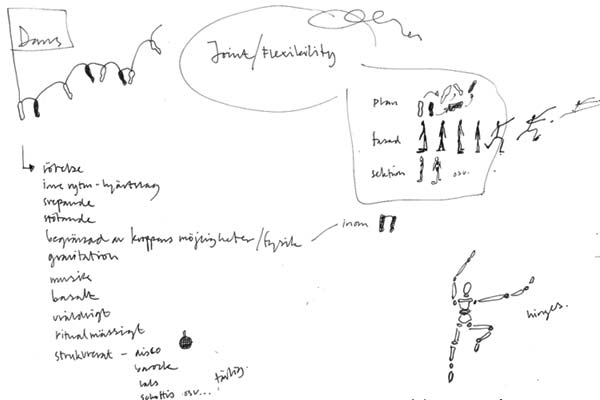 Dans
Joint/Flexibility
plan
fasad
sektion osv.
rörelse
inre rytm - hjärtslag
svepande
stötande
begränsad av kroppens möjligheter/fysik
inom
gravitation
musik
basalt
världsligt
ritualmässigt
strukturerat - disco
barock
vals
schottis osv...
tävling
hinges.